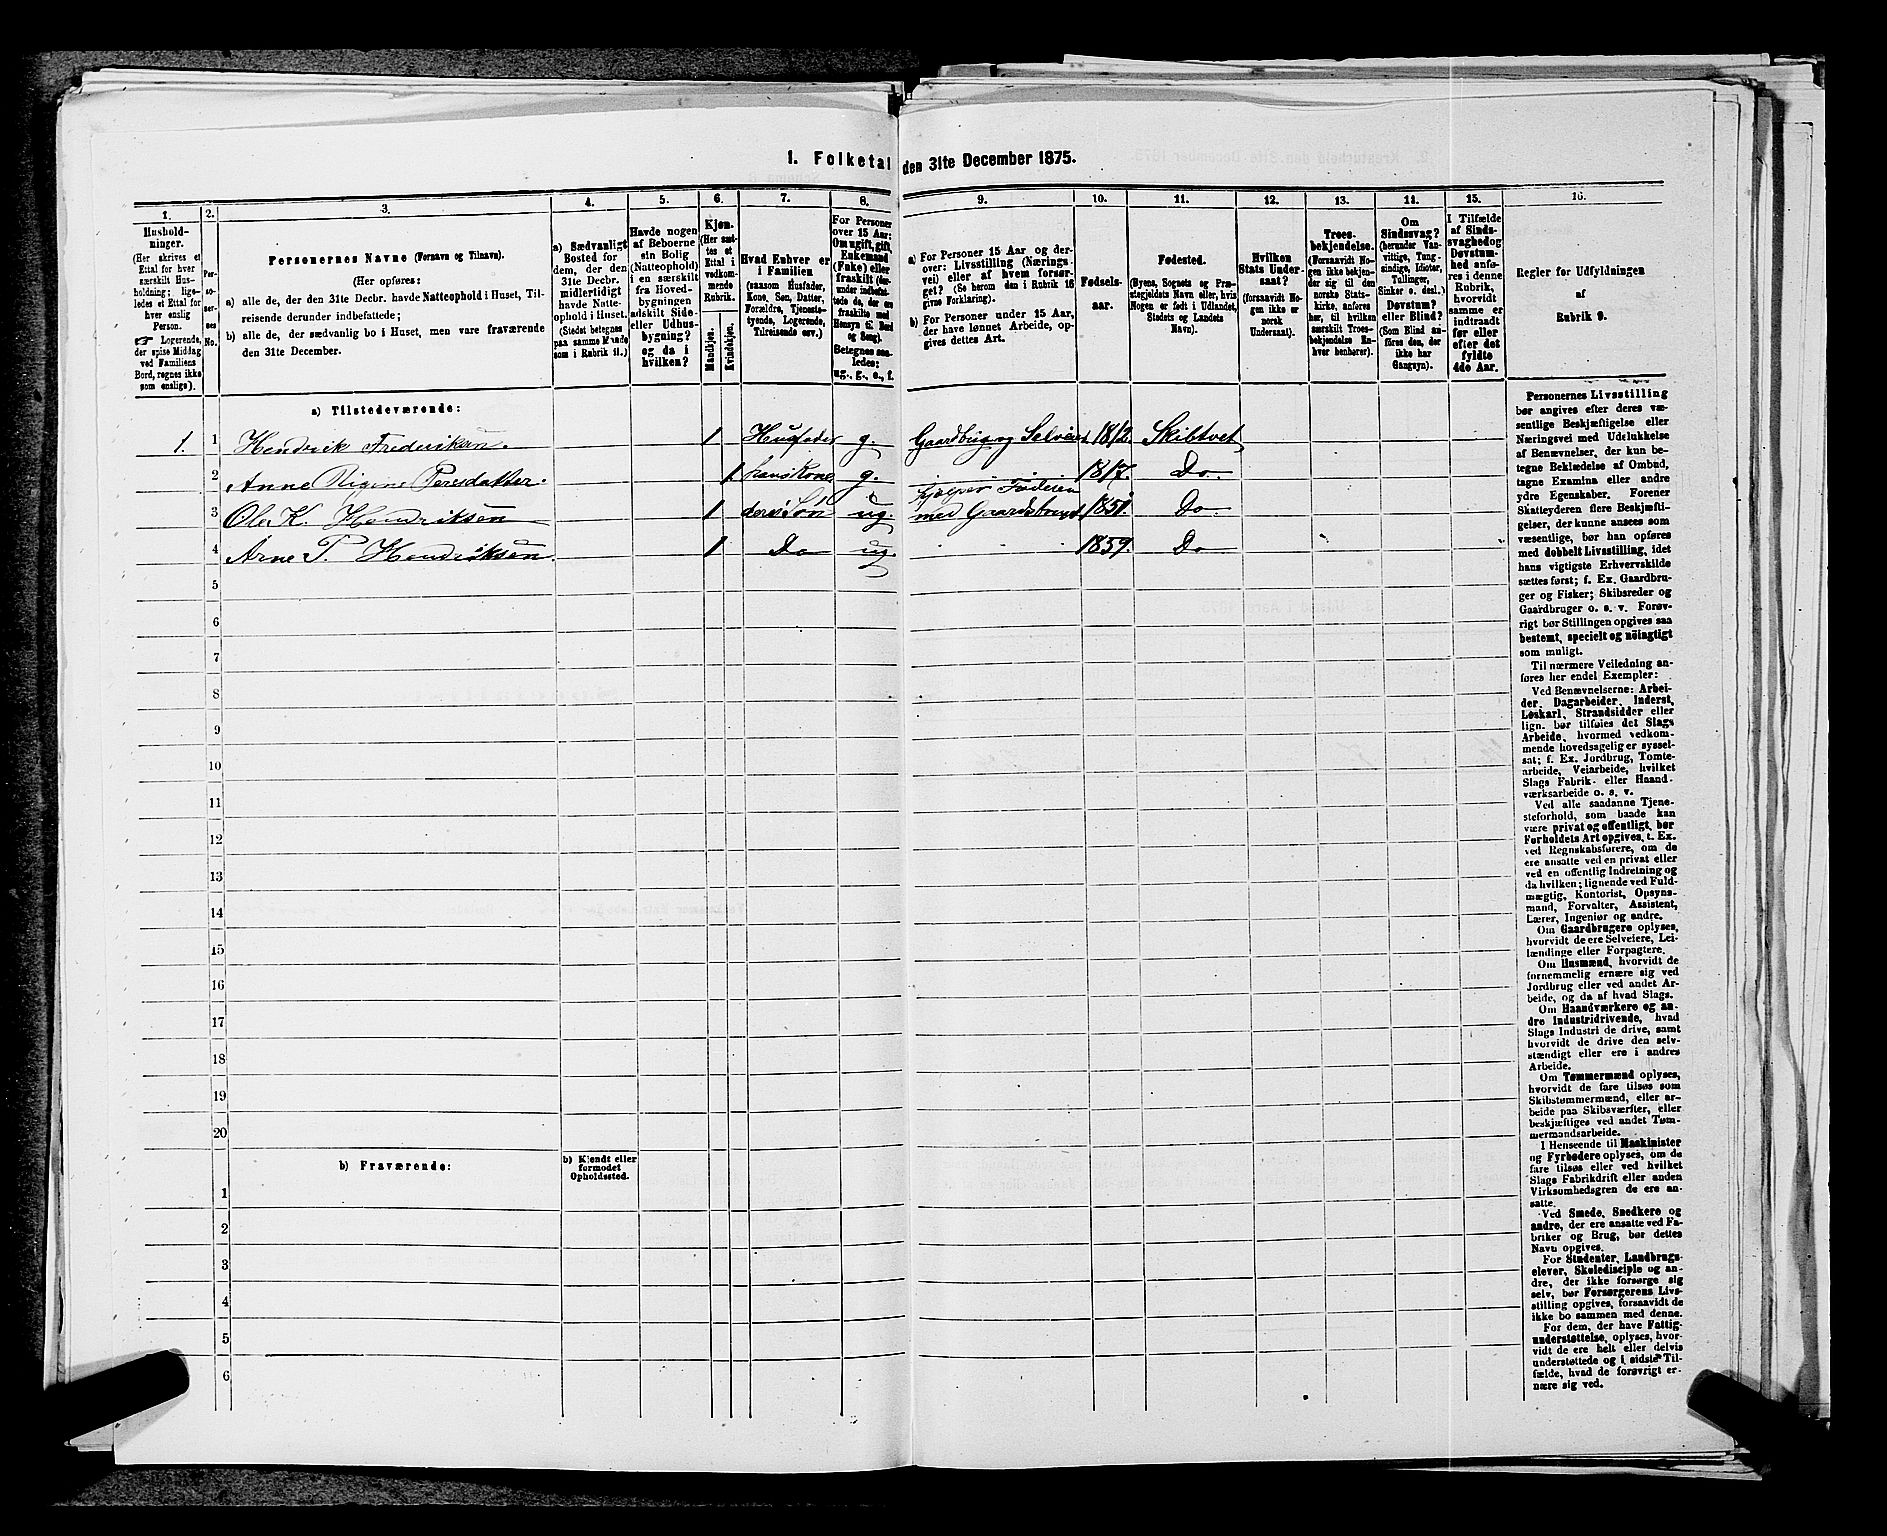 1. Folketal den 31te December 1875.
1.
2.
3.
4.
5.
6.
7.
8.
9.
10.
11.
12.
13.
14.
15.
16.
Hushold-
ninger.
(Her skrives et
Ettal for hver
særskilt Hus-
holdning; lige-
ledes et Ettal for
hver enslig
Person.
☞ Logerende,
der spise Middag
ved Familiens
Bord, regnes ikke
som enslige).
Per-
so-
ner-
nes
No.
Personernes Navne (Fornavn og Tilnavn).
(Her opføres:
a) alle de, der den 31te Decbr. havde Natteophold i Huset, Til-
reisende derunder indbefattede;
b) alle de, der sædvanlig bo i Huset, men vare fraværende
den 31te December.
a) Sædvanligt
Bosted for
dem, der den
31te Decbr.
midlertidigt
havde Natte-
ophold i Huset.
(Stedet betegnes
paa samme Maade
som i Rubrik 11.)
Havde nogen
af Beboerne
sin Bolig
(Natteophold)
i en særskilt
fra Hoved-
bygningen
adskilt Side-
eller Udhus-
bygning?
og da i
hvilken?
Kjøn.
(Her sæt-
tes et
Ettal i
vedkom-
mende
Rubrik.
Mandkjøn.
Kvindekjøn.
Hvad Enhver er
i Familien
(saasom Husfader,
Kone, Søn, Datter,
Forældre, Tjeneste-
tyende, Logerende,
Tilreisende osv.)
For Personer
over 15 Aar:
Om ugift, gift,
Enkemand
(Enke) eller
fraskilt (der-
under indbefat-
tede de, der ere
fraskilte med
Hensyn til Bord
og Seng).
Betegnes saa-
ledes:
ug., g., e., f.
a) For Personer 15 Aar og der-
over: Livsstilling (Nærings-
vei) eller af hvem forsør-
get? (Se herom den i Rubrik 16
givne Forklaring).
b) For Personer under 15 Aar,
der have lønnet Arbeide, op-
gives dettes Art.
Fødsels-
aar.
Fødested.
(Byens, Sognets og Præ-
stegjeldets Navn eller, hvis
Nogen er født i Udlandet,
Stedets og Landets
Navn).
Hvilken
Stats Under-
saat?
(forsaavidt No-
gen ikke er
norsk
Undersaat).
Troes-
bekjendelse.
(Forsaavidt No-
gen ikke bekjen-
der sig til den
norske Stats-
kirke, anføres
her, til hvilken
særskilt Troes-
bekjendelse En-
hver henhører).
Om
Sindssvag?
(herunder Van-
vittige, Tung-
sindige, Idioter,
Tullinger,
Sinker o. desl.)
Døvstum?
eller Blind?
(Som Blind an-
føres den, der
ikke har
Gangsyn).
I Tilfælde
af Sinds-
svaghed og
Døvstum-
hed anfø-
res i denne
Rubrik,
hvorvidt
samme er
indtraadt
før eller
efter det
fyldte
4de Aar.
Regler for Udfyldningen
af
Rubrik 9.
a) Tilstedeværende:
1. 1 Hendrik Frederiksen. 1 Husfader g. Gaardbruger Selveier 1812. Skibtvet
2 Anne Persdatter. 1 hans Kone g. 1817. Do
3 Ole K. Hendriksen 1 deres Søn ug. Hjælper Faderen
med Gaardsbrug 1851. Do
4 Arne P. Hendriksen. 1 Do ug. 1859. Do
5
6
7
8
9
10
11
12
13
14
15
16
17
18
19
20
b) Fraværende:
b) Kjendt eller
formodet
Opholdssted.
1
2
3
4
5
6
Personernes Livsstilling
bør angives efter deres væ-
sentlige Beskjæftigelse eller
Næringsvei med Udelukkelse
af Benævnelser, der kun be-
tegne Beklædelse af Ombud,
tagne Examina eller andre
ydre Egenskaber. Forener
Skatteyderen flere Beskjæfti-
gelser, der kunne ansees som
væsentlige, bør han opføres
med dobbelt Livsstilling, idet
hans vigtigste Erhvervskilde
sættes først; f. Ex. Gaardbru-
ger og Fisker; Skibsreder og
Gaardbruger o. s. v. Forøv-
rigt bør Stillingen opgives saa
bestemt, specielt og nöiagtigt
som muligt.
Til nærmere Veiledning an-
føres her endel Exempler:
Ved Benævnelserne: Arbei-
der, Dagarbeider, Inderst,
Løskarl, Strandsidder eller
lign. bør tilføies det Slags
Arbeide, hvormed vedkom-
mende hovedsagelig er syssel-
sat; f. Ex. Jordbrug, Tomte-
arbeide, Veiarbeide, hvilket
Slags Fabrik- eller Haand-
værksarbeide o. s. v.
Ved alle saadanne Tjene-
steforhold, som baade kan
være privat og offentligt, bør
Forholdets Art opgives, t. Ex.
ved Regnskabsførere, om de
ere ansatte ved en privat eller
ved en offentlig Indretning og
da hvilken; lignende ved Fuld-
mægtig, Kontorist, Opsyns-
mand, Forvalter, Assistent,
Lærer, Ingeniør og andre.
Om Gaardbrugere oplyses,
hvorvidt de ere Selveiere, Lei-
lændinge eller Forpagtere.
Om Husmænd, hvorvidt de
fornemmelig ernære sig ved
Jordbrug eller ved andet Ar-
beide, og da af hvad Slags.
Om Haandværkere og an-
dre Industridrivende, hvad
Slags Industri de drive, samt
hvorvidt de drive den selv-
stændigt eller ere i andres
Arbeide.
Om Tømmermænd oplyses,
hvorvidt de fare tilsøs som
Skibstømmermænd, eller ar-
beide paa Skibsværfter, eller
beskjæftiges ved andet Tøm-
mermandsarbeide.
I Henseende til Maskinister
og Fyrbødere oplyses, om de
fare tilsøs eller ved hvilket
Slags Fabrikdrift eller anden
Virksomhedsgren de ere an-
satte.
Ved Smede, Snedkere og
andre, der ere ansatte ved Fa-
briker og Brug, bør dettes
Navn opgives.
For Studenter, Landbrugs-
elever, Skoledisciple og an-
dre, der ikke forsørge sig
selv, bør Forsørgerens Livs-
stilling opgives, forsaavidt de
ikke bo sammen med denne.
For dem, der have Fattig-
understøttelse, oplyses, hvor-
vidt de ere helt eller delvis
understøttede og i sidste Til-
fælde, hvad de forøvrigt er-
nære sig ved.